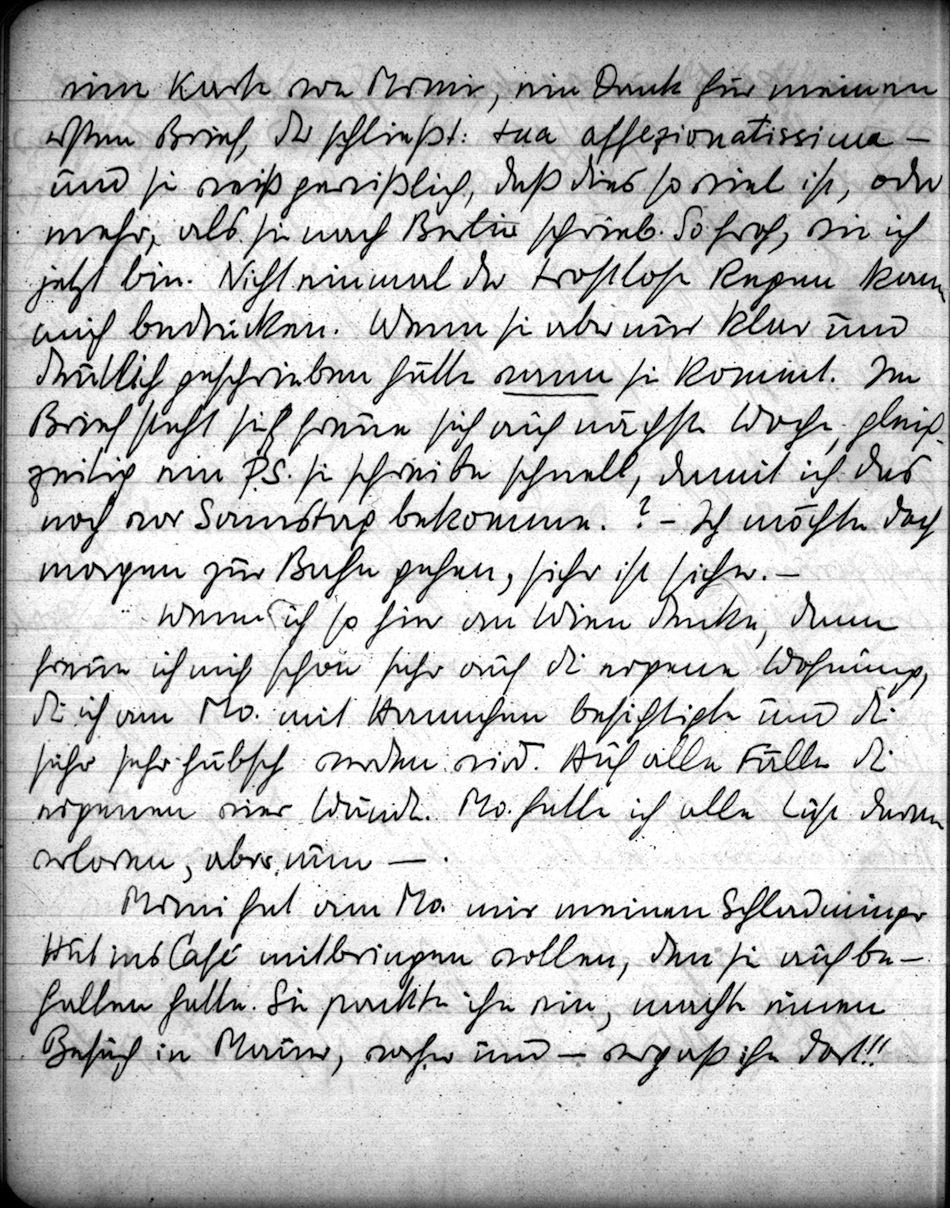 eine Karte von Mimi, ein Dank für meinen
ersten Brief, der schließt: tua affezionatissima –
und sie weiß gewißlich, daß dies so viel ist, oder
mehr, als sie nach Berlin schrieb. So froh, wie ich
jetzt bin. Nicht einmal der trostlose Regen kann
mich bedrücken. Wenn sie aber nur klar und
deutlich geschrieben hätte wann sie kommt. Im
Brief steht sie freue sich auf nächste Woche, gleich-
zeitig ein P.S. sie schreibe schnell, damit ich das
noch vor Samstag bekomme. ? – Ich möchte doch
morgen zur Bahn gehen, sicher ist sicher. –
Wenn ich so hier an Wien denke, dann
freue ich mich schon sehr auf die eigene Wohnung,
die ich am Mo. mit Hannchen besichtigte und die
sehr sehr hübsch werden wird. Auf alle Fälle die
eigenen vier Wände. Mo. hatte ich alle Lust daran
verloren, aber nun – .
Mimi hat am Mo. mir meinen Schladminger
Hut ins Café mitbringen wollen, den sie aufbe–
halten hatte. Sie packte ihn ein, machte einen
Besuch in Mauer, vorher und – vergaß ihn dort!!